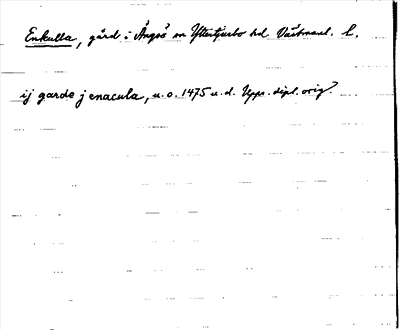 Enkulla, gård i Ängsö sn Yttertjurbo hd Västmanl. l.
ij garde j enacula, u.o. 1475 u.d. Upps. dipl. orig.